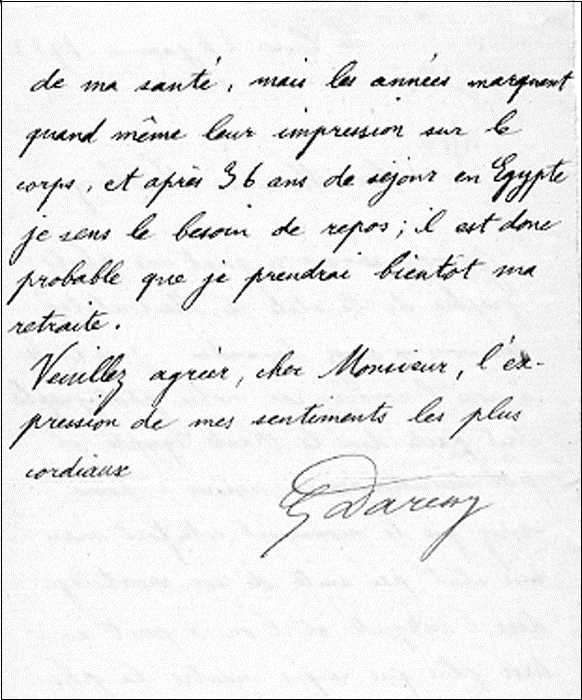 de ma santé, mais les années marquent
quand même leur impression sur le
corps, et après 36 ans de séjour en Egypte
je sens le besoin de repos; il est donc
probable que je prendrai bientôt ma
retraite.
Veuillez agréer, cher Monsieur, l'ex-
pression de mes sentiments les plus
cordiaux